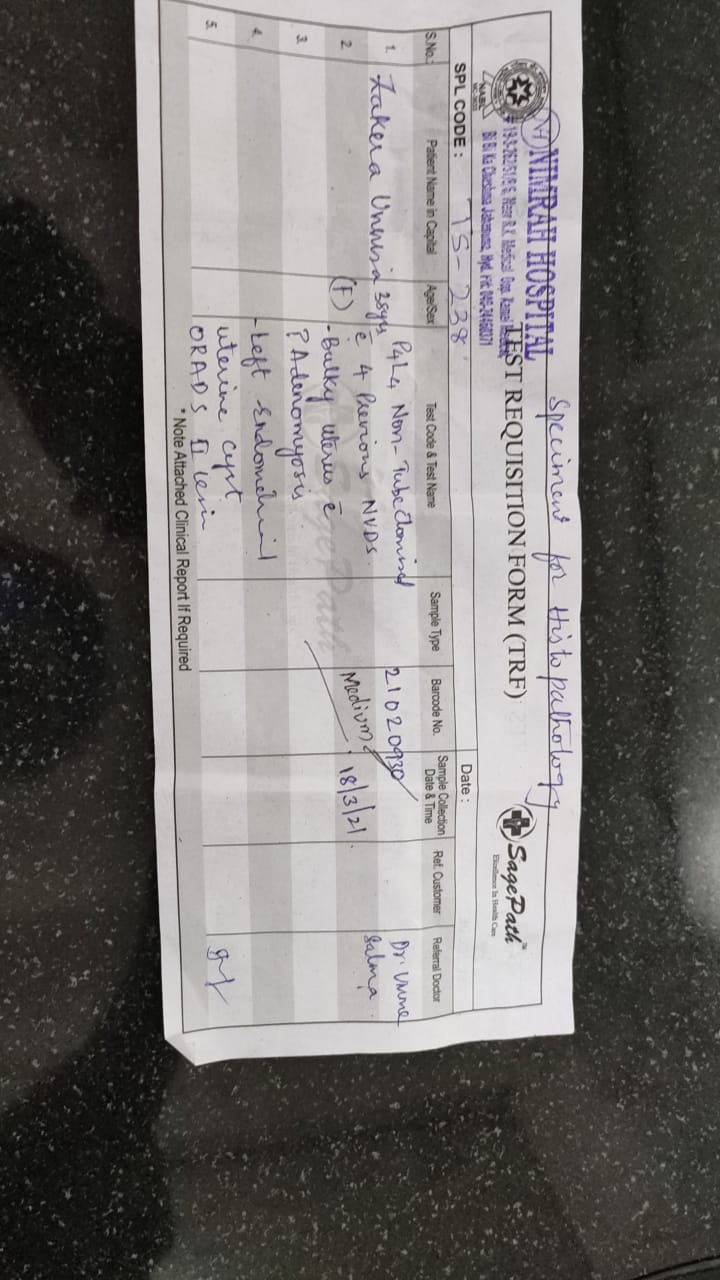 Specimens for Histopathology
NIMRAH HOSPITAL
19-3-262/51/5/6, Near R.K. Medical
Bi Bi Ka Chashma Jahanuma, Hyd.
TEST REQUISITION FORM (TRF)
SagePath™
Excellence In Health Care
NABL
SPL CODE : TS-238
Date :
S.No.: Patient Name in Capital Age/Sex Test Code & Test Name Sample Type Barcode No. Sample Collection Date & Time Ref. Customer Referral Doctor
1. Zakera Unnisa 38yrs P4L4 Non-Tubectomised 21020930 Dr. Umme
c̄ 4 Previous NVDS. Salma
2 (F) - Bulky uterus c̄ Medium 18/3/21.
3 ? Adenomyosis
4. - Left Endometrial
5. uterine cyst
ORADS II lesin
* Note Attached Clinical Report If Required